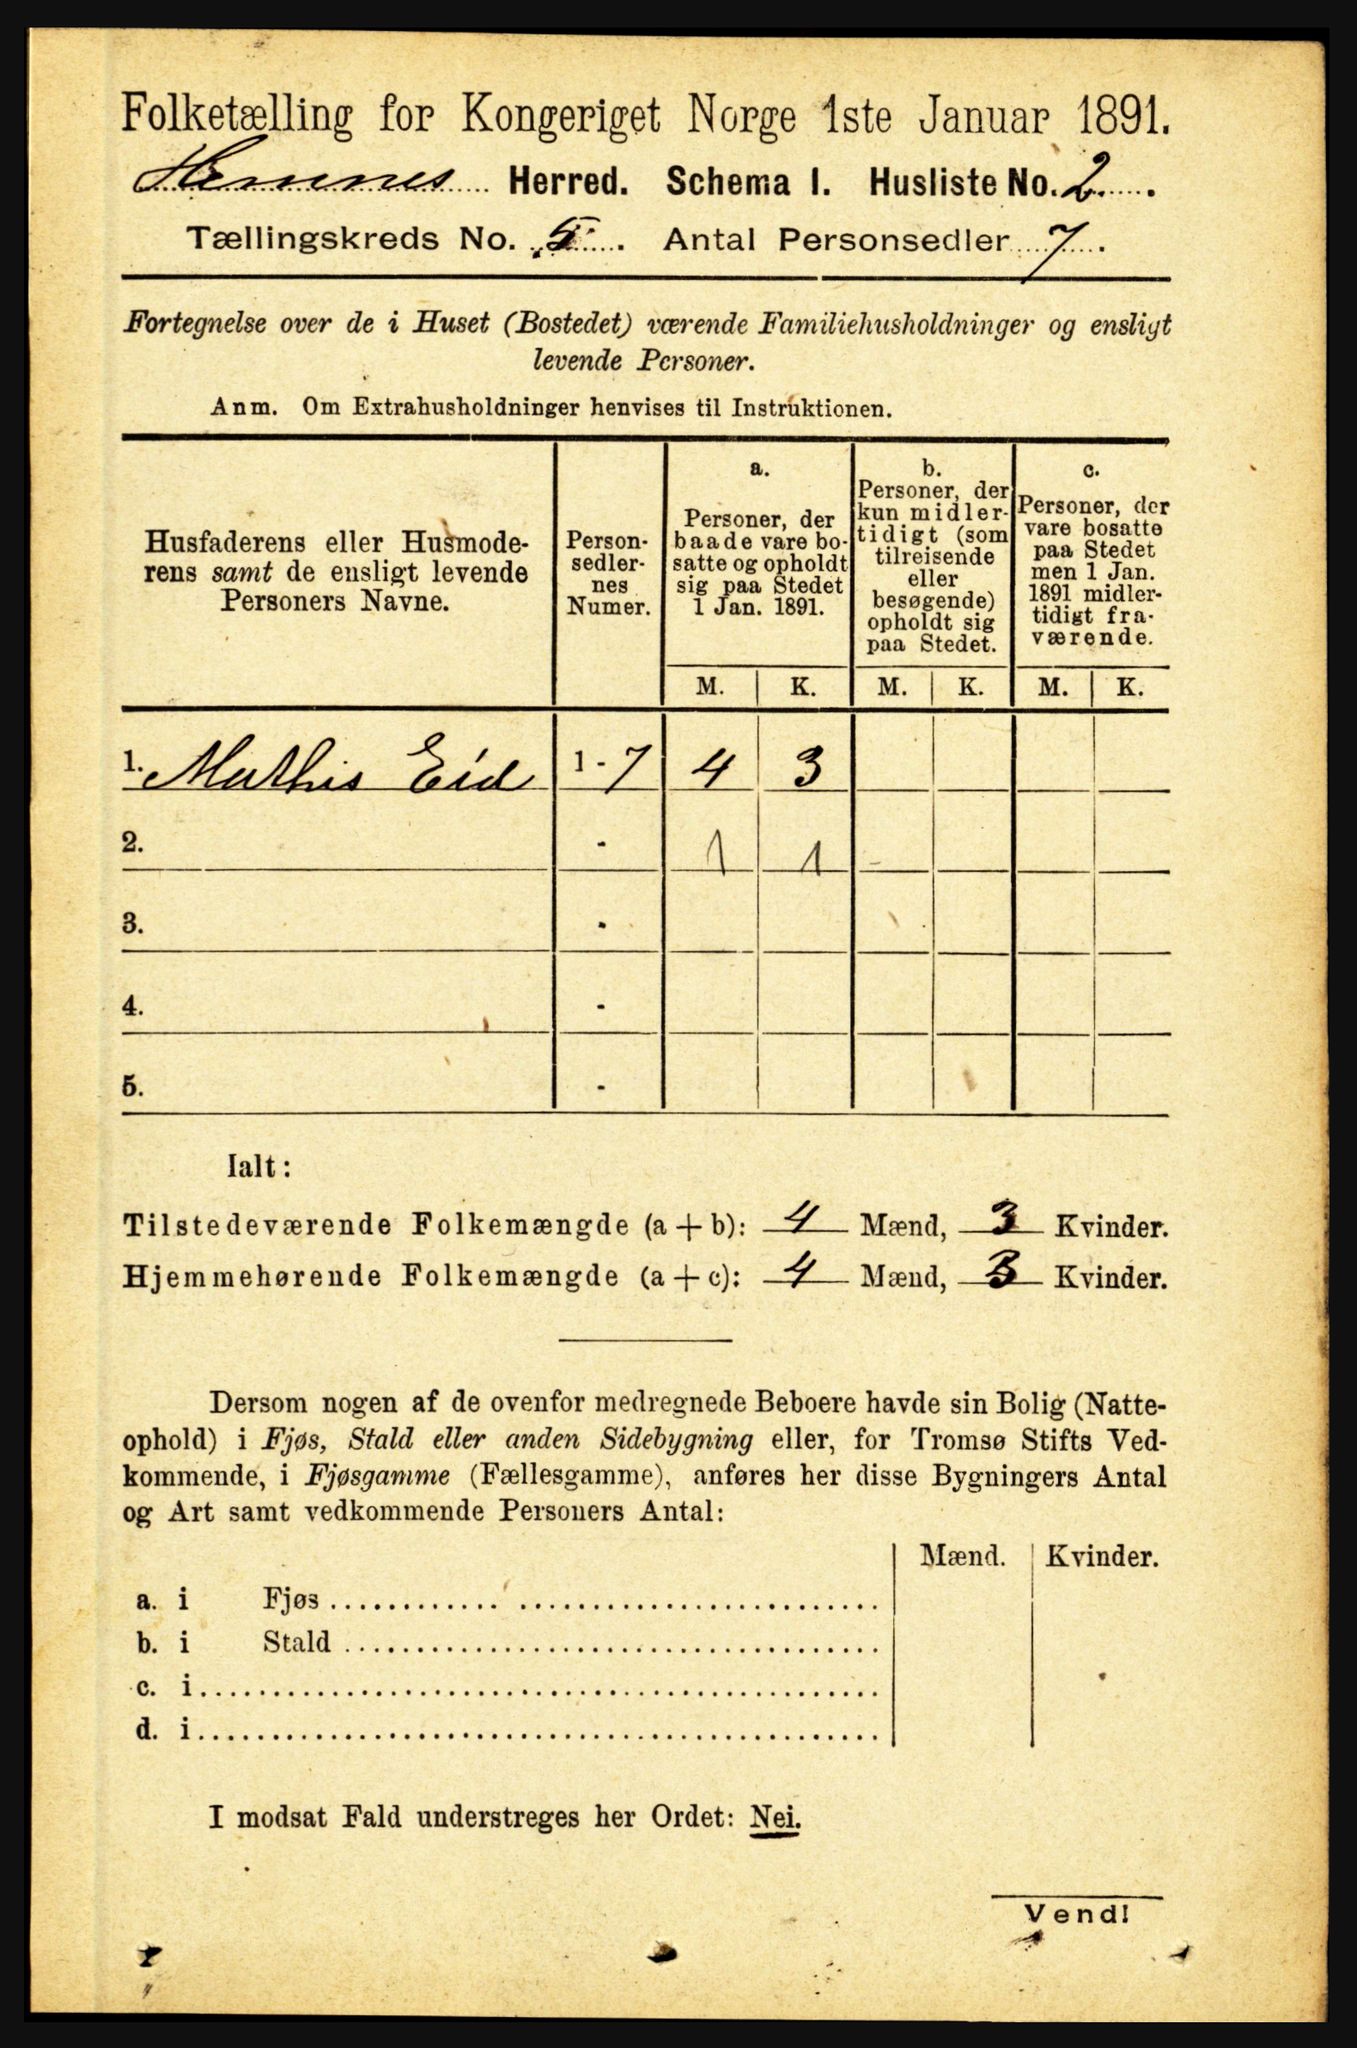 Folketælling for Kongeriget Norge 1ste Januar 1891.
Hemnes Herred. Schema I. Husliste No. 2.
Tællingskreds No. 5. Antal Personsedler 7.
Fortegnelse over de i Huset (Bostedet) værende Familiehusholdninger og ensligt
levende Personer.
Anm. Om Extrahusholdninger henvises til Instruktionen.
Husfaderens eller Husmode-
rens samt de ensligt levende
Personers Navne.
Person-
sedler-
nes
Numer.
a.
Personer, der
baade vare bo-
satte og opholdt
sig paa Stedet
1 Jan. 1891.
b.
Personer, der
kun midler-
tidigt (som
tilreisende
eller
besøgende)
opholdt sig
paa Stedet.
c.
Personer, der
vare bosatte
paa Stedet
men 1 Jan.
1891 midler-
tidigt fra-
værende.
M. K. M. K. M. K.
1. Mathis Eid 1 - 7 4 3
2. - 1 1
3. -
4. -
5. -
Ialt:
Tilstedeværende Folkemængde (a + b): 4 Mænd, 3 Kvinder.
Hjemmehørende Folkemængde (a + c): 4 Mænd, 3 Kvinder.
Dersom nogen af de ovenfor medregnede Beboere havde sin Bolig (Natte-
ophold) i Fjøs, Stald eller anden Sidebygning eller, for Tromsø Stifts Ved-
kommende, i Fjøsgamme (Fællesgamme), anføres her disse Bygningers Antal
og Art samt vedkommende Personers Antal:
Mænd. Kvinder.
a. i Fjøs
b. i Stald
c. i
d. i
I modsat Fald understreges her Ordet: Nei.
Vend!